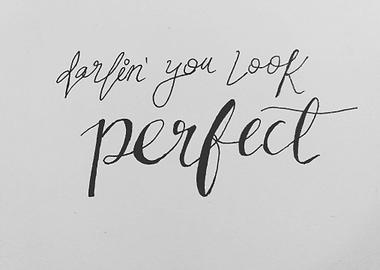 darlin' you look
perfect